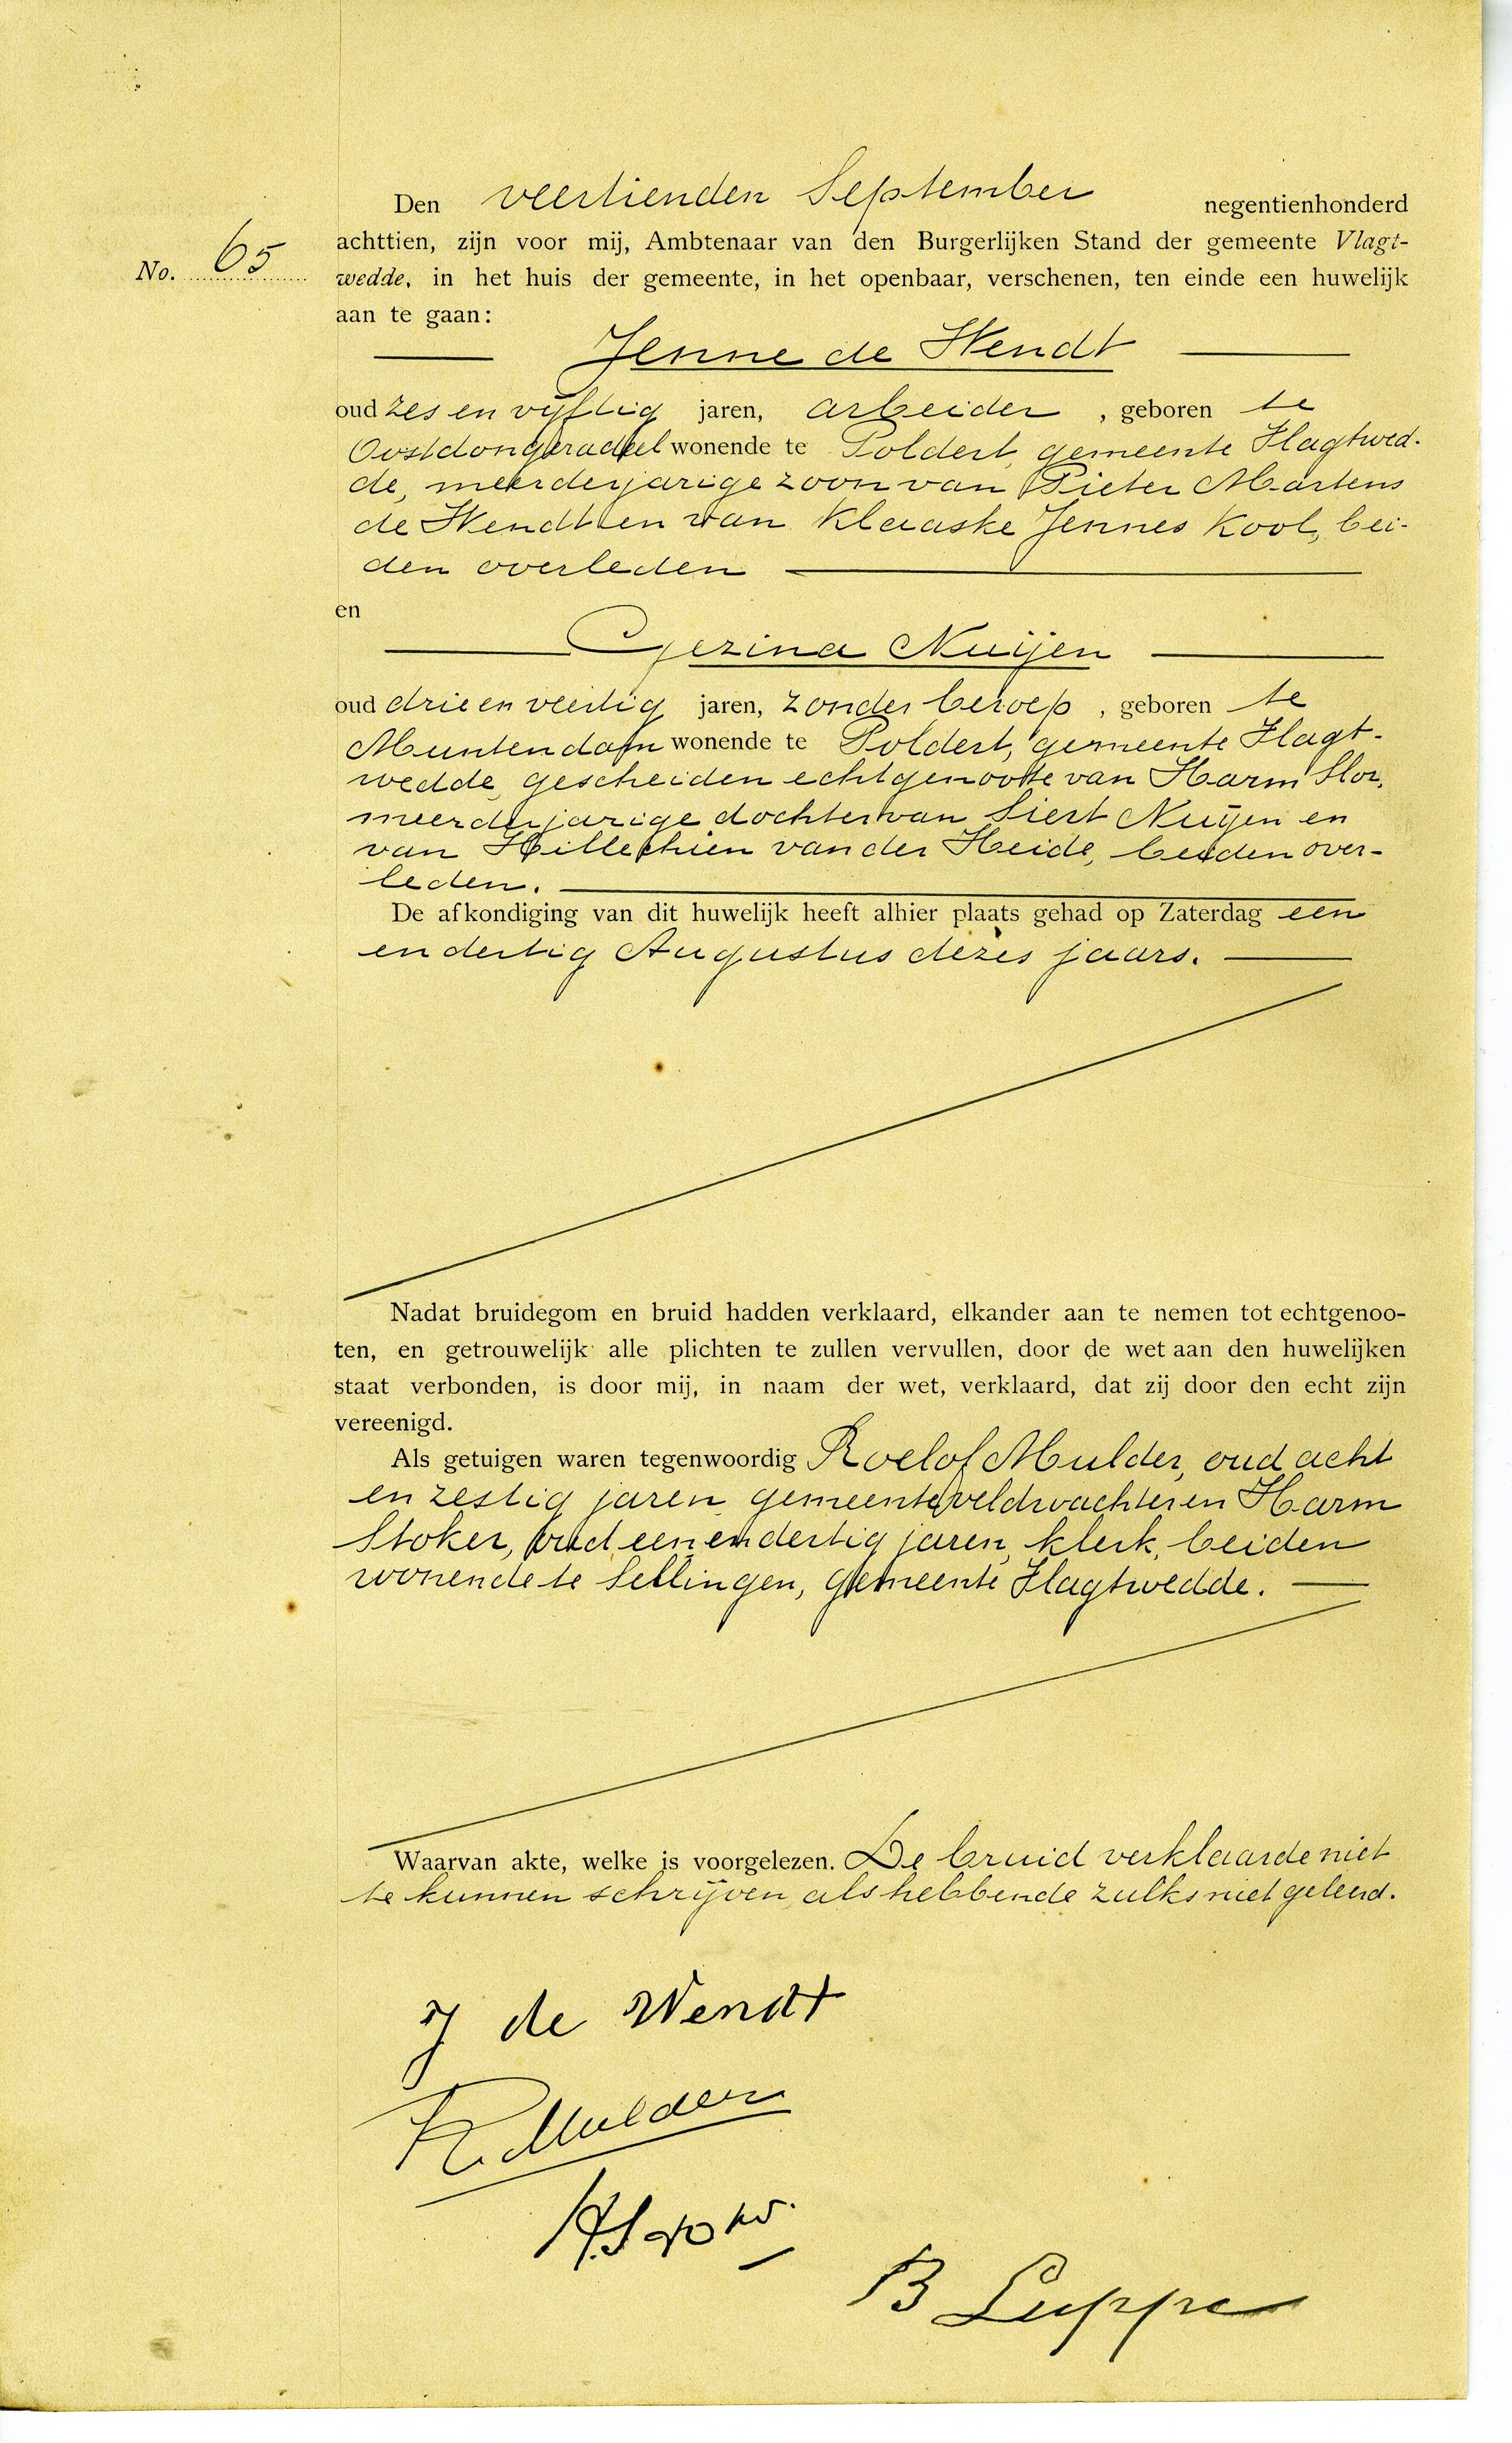 Den veertienden September negentienhonderd
No. 65
achttien, zijn voor mij, Ambtenaar van den Burgerlijken Stand der gemeente Vlagt-
wedde, in het huis der gemeente, in het openbaar, verschenen, ten einde een huwelijk
aan te gaan:
Jenne de Wendt
oud zes en vijftig jaren, arbeider , geboren te
Oostdongeradeel wonende te Poldert, gemeente Vlagtwed-
de, meerderjarige zoon van Pieter Martens
de Wendt en van Klaaske Jennes Kool, bei-
den overleden
en
Gezina Nuijen
oud drie en veertig jaren, zonder beroep , geboren te
Muntendam wonende te Poldert, gemeente Vlagt-
wedde, gescheiden echtgenoote van Harm Slor,
meerderjarige dochter van Siert Nuijen en
van Hillechien van der Heide, beiden over-
leden.
De afkondiging van dit huwelijk heeft alhier plaats gehad op Zaterdag een
en dertig Augustus dezes jaars.
Nadat bruidegom en bruid hadden verklaard, elkander aan te nemen tot echtgenoo-
ten, en getrouwelijk alle plichten te zullen vervullen, door de wet aan den huwelijken
staat verbonden, is door mij, in naam der wet, verklaard, dat zij door den echt zijn
vereenigd.
Als getuigen waren tegenwoordig Roelof Mulder, oud acht
en zestig jaren, gemeenteveldwachter en Harm
Stoker, oud een en dertig jaren, klerk, beiden
wonende te Sellingen, gemeente Vlagtwedde.
Waarvan akte, welke is voorgelezen. De bruid verklaarde niet
te kunnen schrijven, als hebbende zulks niet geleerd.
J de Wendt
R. Mulder
H. Stoker
B Luppe